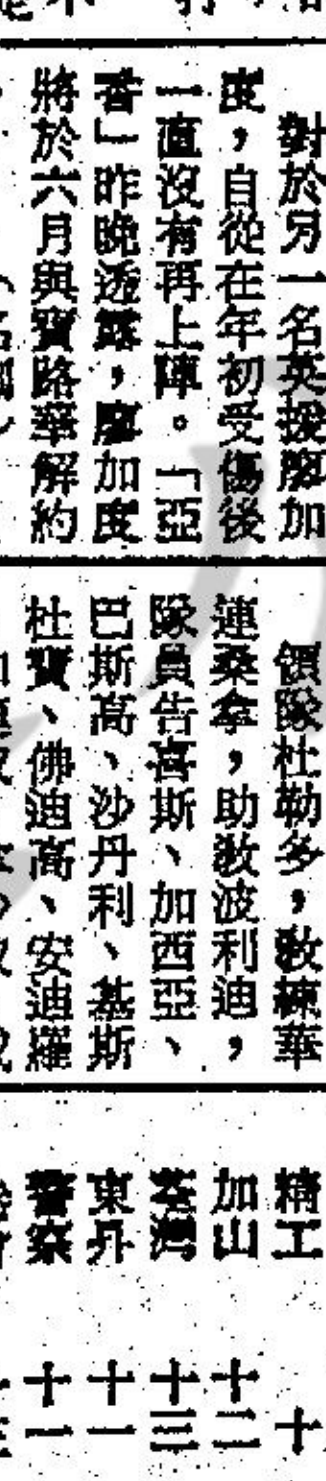 對於另一名英援廖加
度，自從在年初受傷後
一直沒有再上陣。「亞
香」昨晚透露，廖加度
將於六月與寶路華解約
領隊杜勒多，敎練華
連桑拿，助敎波利迪，
隊員告喜斯、加西亞、
巴斯高、沙丹利、基斯
杜寶、佛迪高、安迪羅
精工　十
加山　十二
荃灣　十三
東丹　十一
警察　十一